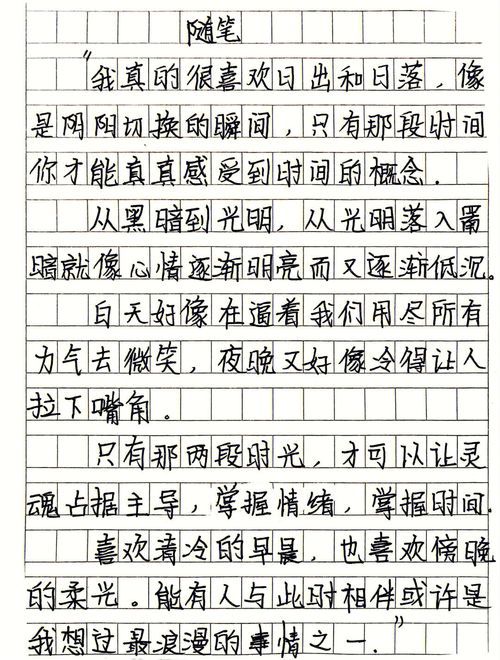 随笔
"我真的很喜欢日出和日落，像
是阴阳切换的瞬间，只有那段时间
你才能真真感受到时间的概念.
从黑暗到光明，从光明落入黑
暗就像心情逐渐明亮而又逐渐低沉。
白天好像在逼着我们用尽所有
力气去微笑，夜晚又好像冷得让人
拉下嘴角。
只有那两段时光，才可以让灵
魂占据主导，掌握情绪，掌握时间.
喜欢清冷的早晨，也喜欢傍晚
的柔光。能有人与此时相伴或许是
我想过最浪漫的事情之一."